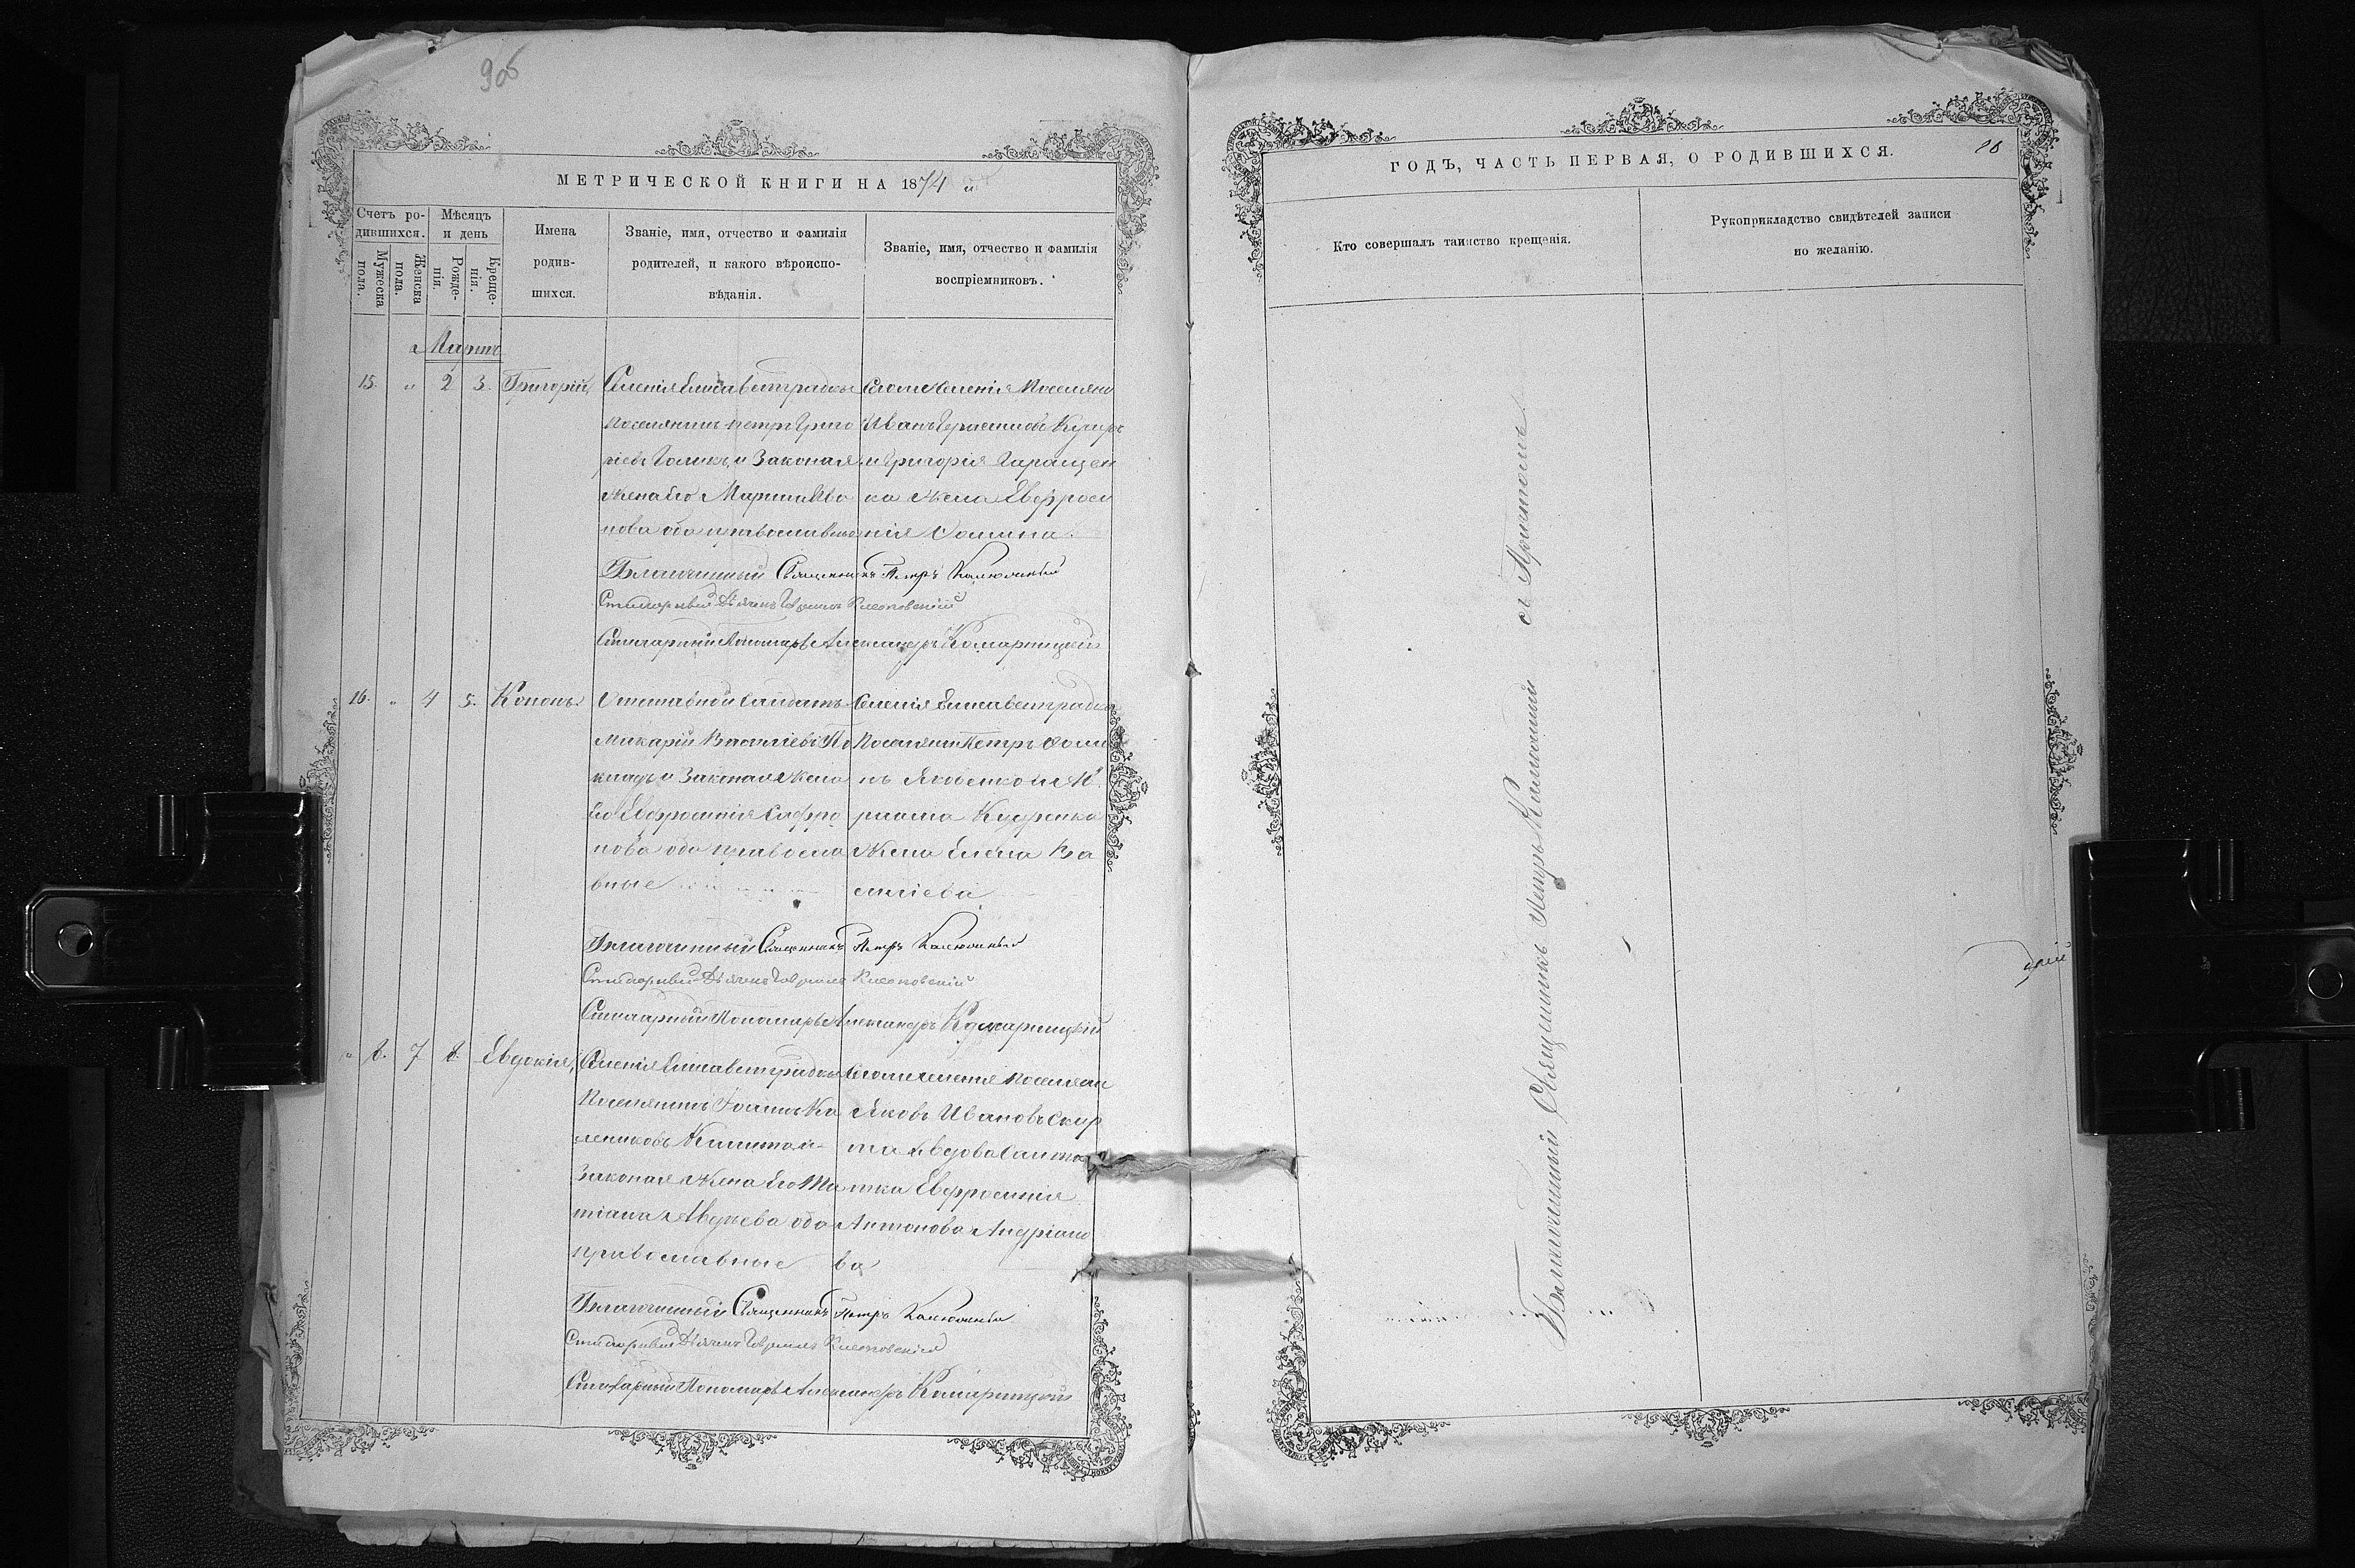 906
МЕТРИЧЕСКОЙ КНИГИ НА 1874 й
Счетъ родившихся.
Мужеска пола.
Женска пола.
Мѣсяцъ и день
Рожденія.
Крещенія.
Имена родившихся.
Званіе, имя, отчество и фамилія
родителей, и какого вѣроиспо-
вѣданія.
Званіе, имя, отчество и фамилія
воспріемниковъ.
Мартъ
15. " 2 3. Григорій,
Селенія Елисаветградки
поселянинъ Петръ Григо
ріевъ Голикъ, и Законая
Жена его Марина Ива
нова оба православные
Тогоже Селенія Поселяни
Иванъ Герасимовъ Кучеръ
и Григорія Таращен
ка Жена Евфроси
нія Фомина.
Благочинный Священникъ Петръ
Стихарный Дьячекъ Гавріилъ
Стихарный Пономарь Александръ Комарницкій
16. " 4 5. Кононъ.
Отставной Салдатъ
Макарій Василіевъ По
кладъ и Законая Жена
его Евфросинія Сафро
нова оба правосла
вные
Селенія Елисаветградки
Поселянинъ Петръ Фоми
нъ Яковенко и М
Кудренка
Жена Елена Ва
силіева
Благочинный Священникъ Петръ
Стихарный Дьячекъ Гавріилъ
Стихарный Пономарь Александръ Комарницкій
" 8. 7 8. Евдокія,
Селенія Елисаветградки
Поселянинъ Іоаннъ Ка
лениковъ
Законая Жена его Та
тіана Авдѣева оба
православные
Тогоже селенія поселян
Яковъ Ивановъ Скир
та и вдова Салдат
ка Евфросинія
Антонова Андріано
ва
Благочинный Священникъ Петръ
Стихарный Дьячекъ Гавріилъ
Стихарный Пономарь Александръ Комарницкій
ГОДЪ, ЧАСТЬ ПЕРВАЯ, О РОДИВШИХСЯ.
Кто совершалъ таинство крещенія.
Рукоприкладство свидѣтелей записи
по желанію.
Благочинный Священникъ Петръ съ Причтомъ